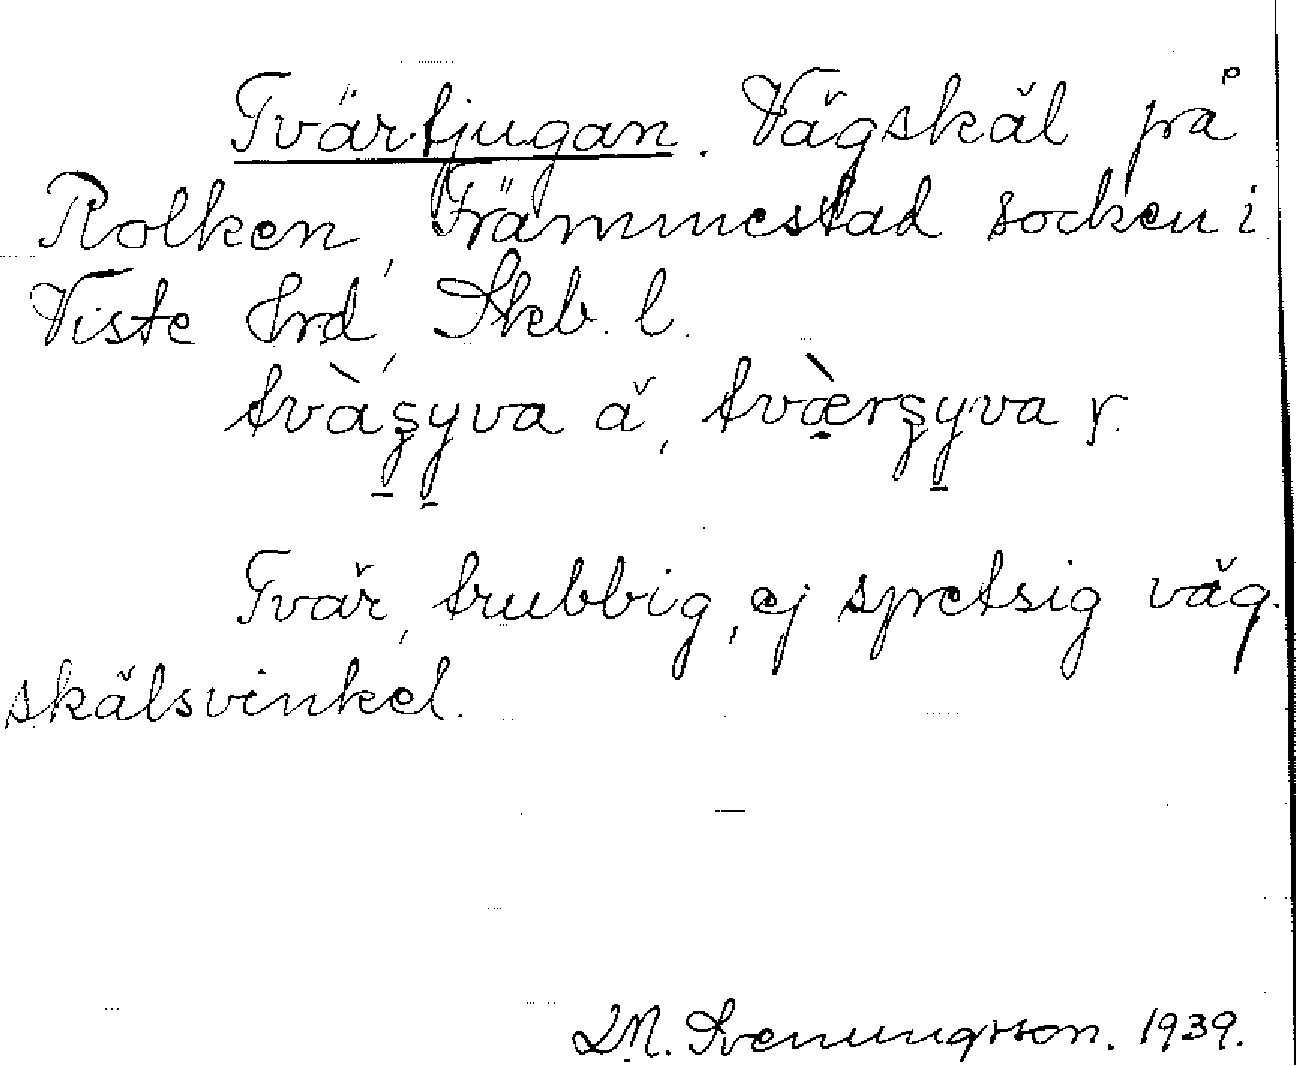 Tvärtjugan. Vägskäl på
Rolken, Främmestad socken i
Viste hrd, Skb. l.
tvàşyva ä, tvæ̀rşyva y.
Tvär, trubbig, ej spetsig väg-
skälsvinkel.
Svenungsson. 1939.